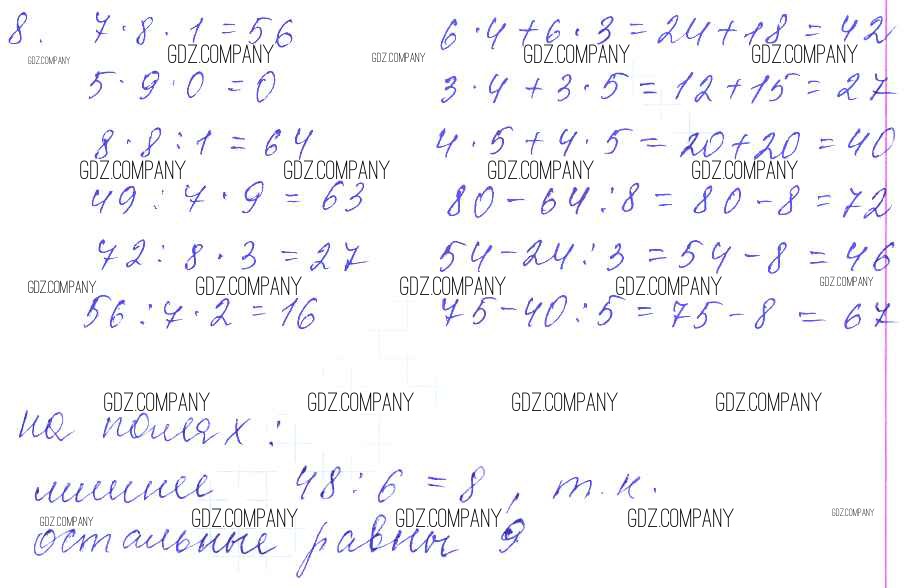 8. 7·8·1=56 6·4+6·3=24+18=42
5·9·0=0 3·4+3·5=12+15=27
8·8:1=64 4·5+4·5=20+20=40
49:7·9=63 80-64:8=80-8=72
72:8·3=27 54-24:3=54-8=46
56:7·2=16 75-40:5=75-8=67
на полях:
лишнее 48:6=8, т.к.
остальные равны 9
GDZ.COMPANY GDZ.COMPANY GDZ.COMPANY GDZ.COMPANY GDZ.COMPANY
GDZ.COMPANY GDZ.COMPANY GDZ.COMPANY GDZ.COMPANY
GDZ.COMPANY GDZ.COMPANY GDZ.COMPANY GDZ.COMPANY GDZ.COMPANY
GDZ.COMPANY GDZ.COMPANY GDZ.COMPANY GDZ.COMPANY
GDZ.COMPANY GDZ.COMPANY GDZ.COMPANY GDZ.COMPANY GDZ.COMPANY